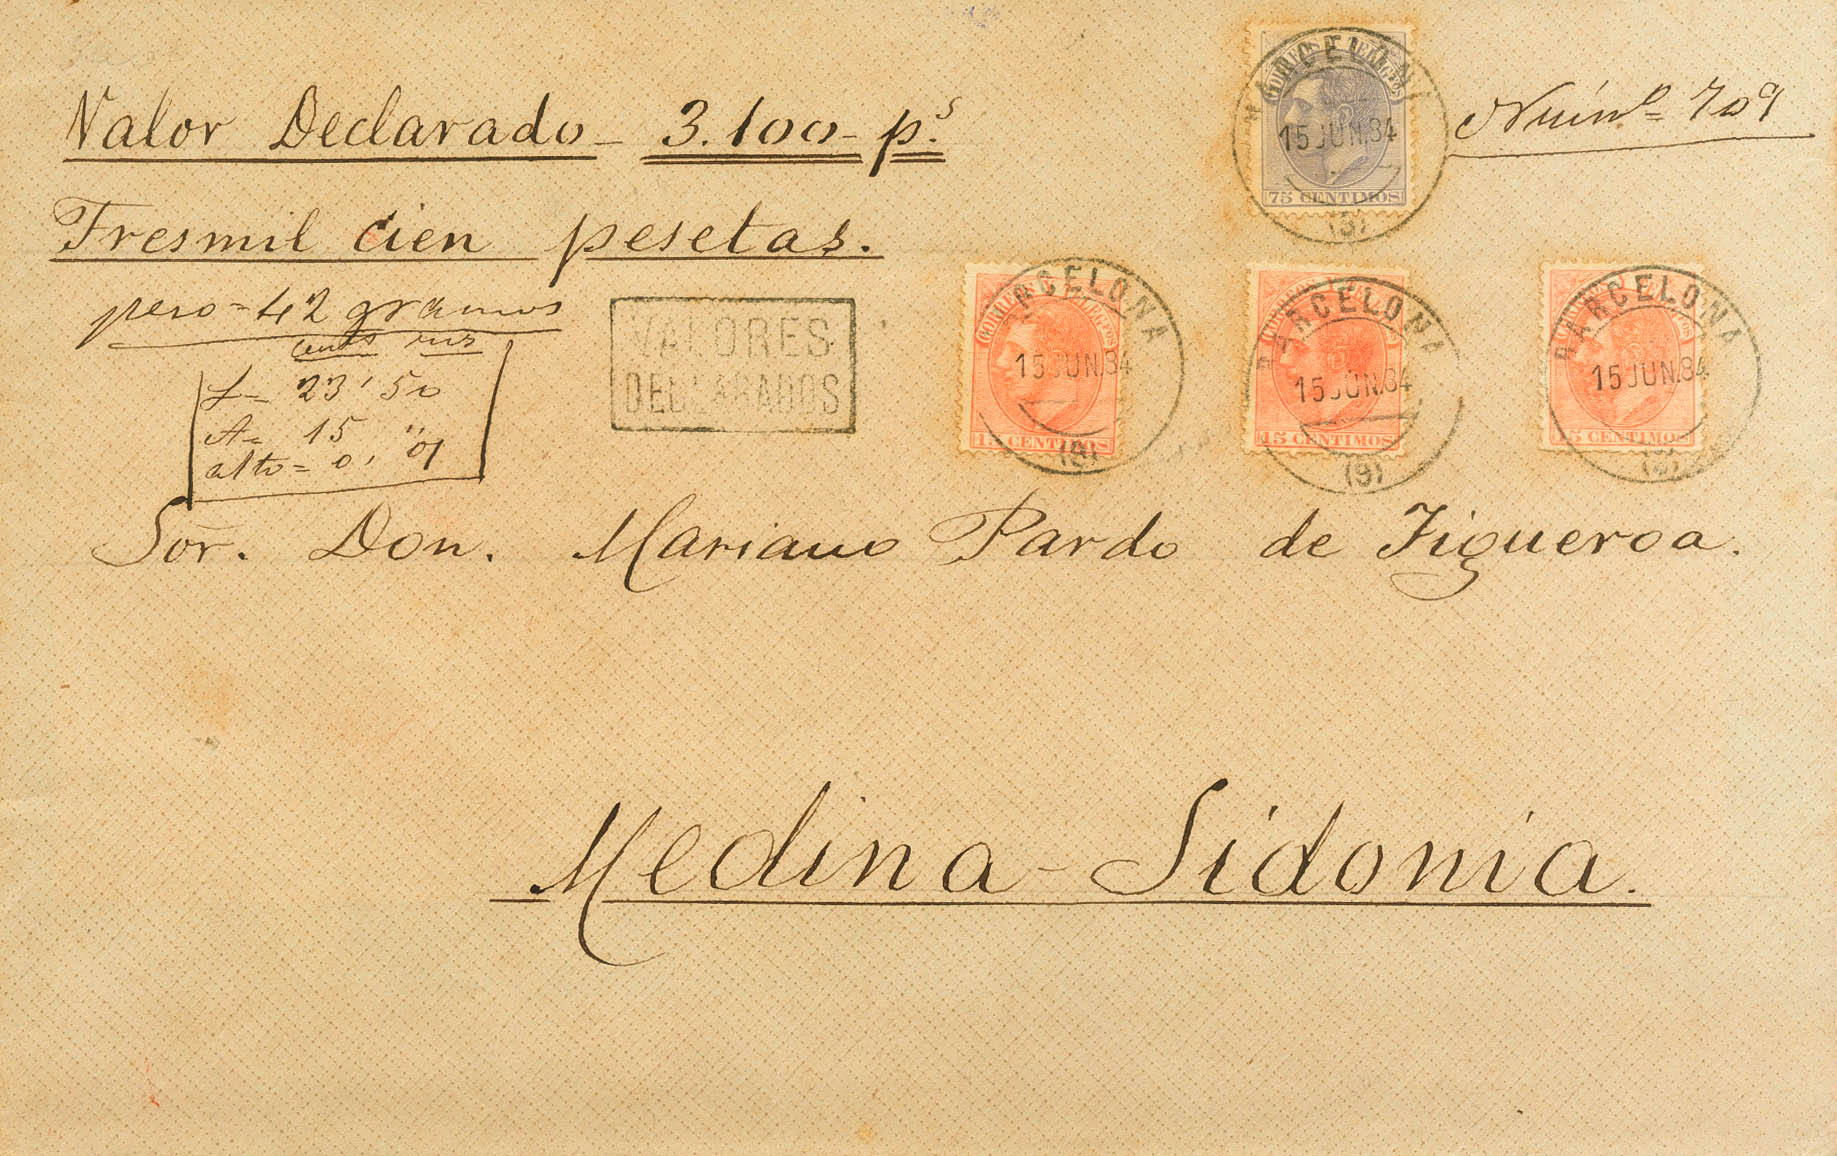 Valor Declarado_ 3.100_ p.s
Tresmil cien pesetas.
peso = 42 gramos
L = 23'50
A = 15 "
alto = 0,01
VALORES
DECLARADOS
Núm.o = 709
CORREOS Y TELEGFOS
75 CENTIMOS
BARCELONA
15 JUN.84
(9)
CORREOS Y TELEGFOS
15 CENTIMOS
BARCELONA
15 JUN.84
(9)
15 CENTIMOS
BARCELONA
15 JUN.84
(9)
15 CENTIMOS
BARCELONA
15 JUN.84
Sor. Don. Mariano Pardo de Figueroa.
Medina-Sidonia.